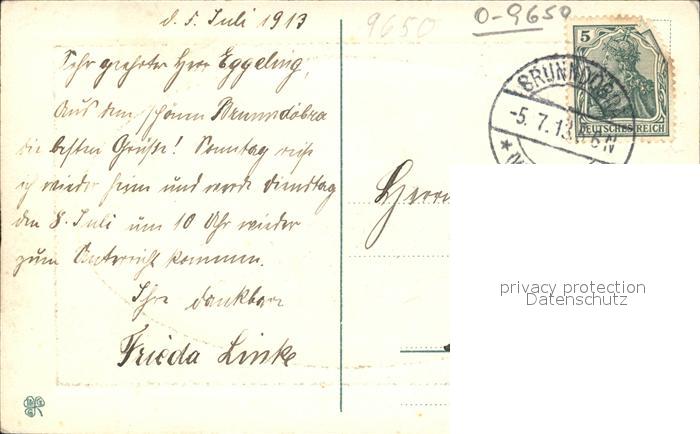 d. 5. Juli 1913
9650
0-9650
Sehr geehrter Herr Eggeling,
Aus dem schönen Brunndöbra
die besten Grüße! Sonntag
ich wieder heim und werde Dienstag
den 8. Juli um 10 Uhr wieder
zum Unterricht kommen.
Ihre dankbare
Frieda Linke
5
DEUTSCHES REICH
BRUNNDÖBRA
-5.7.13. 6-N
Herrn
privacy protection
Datenschutz